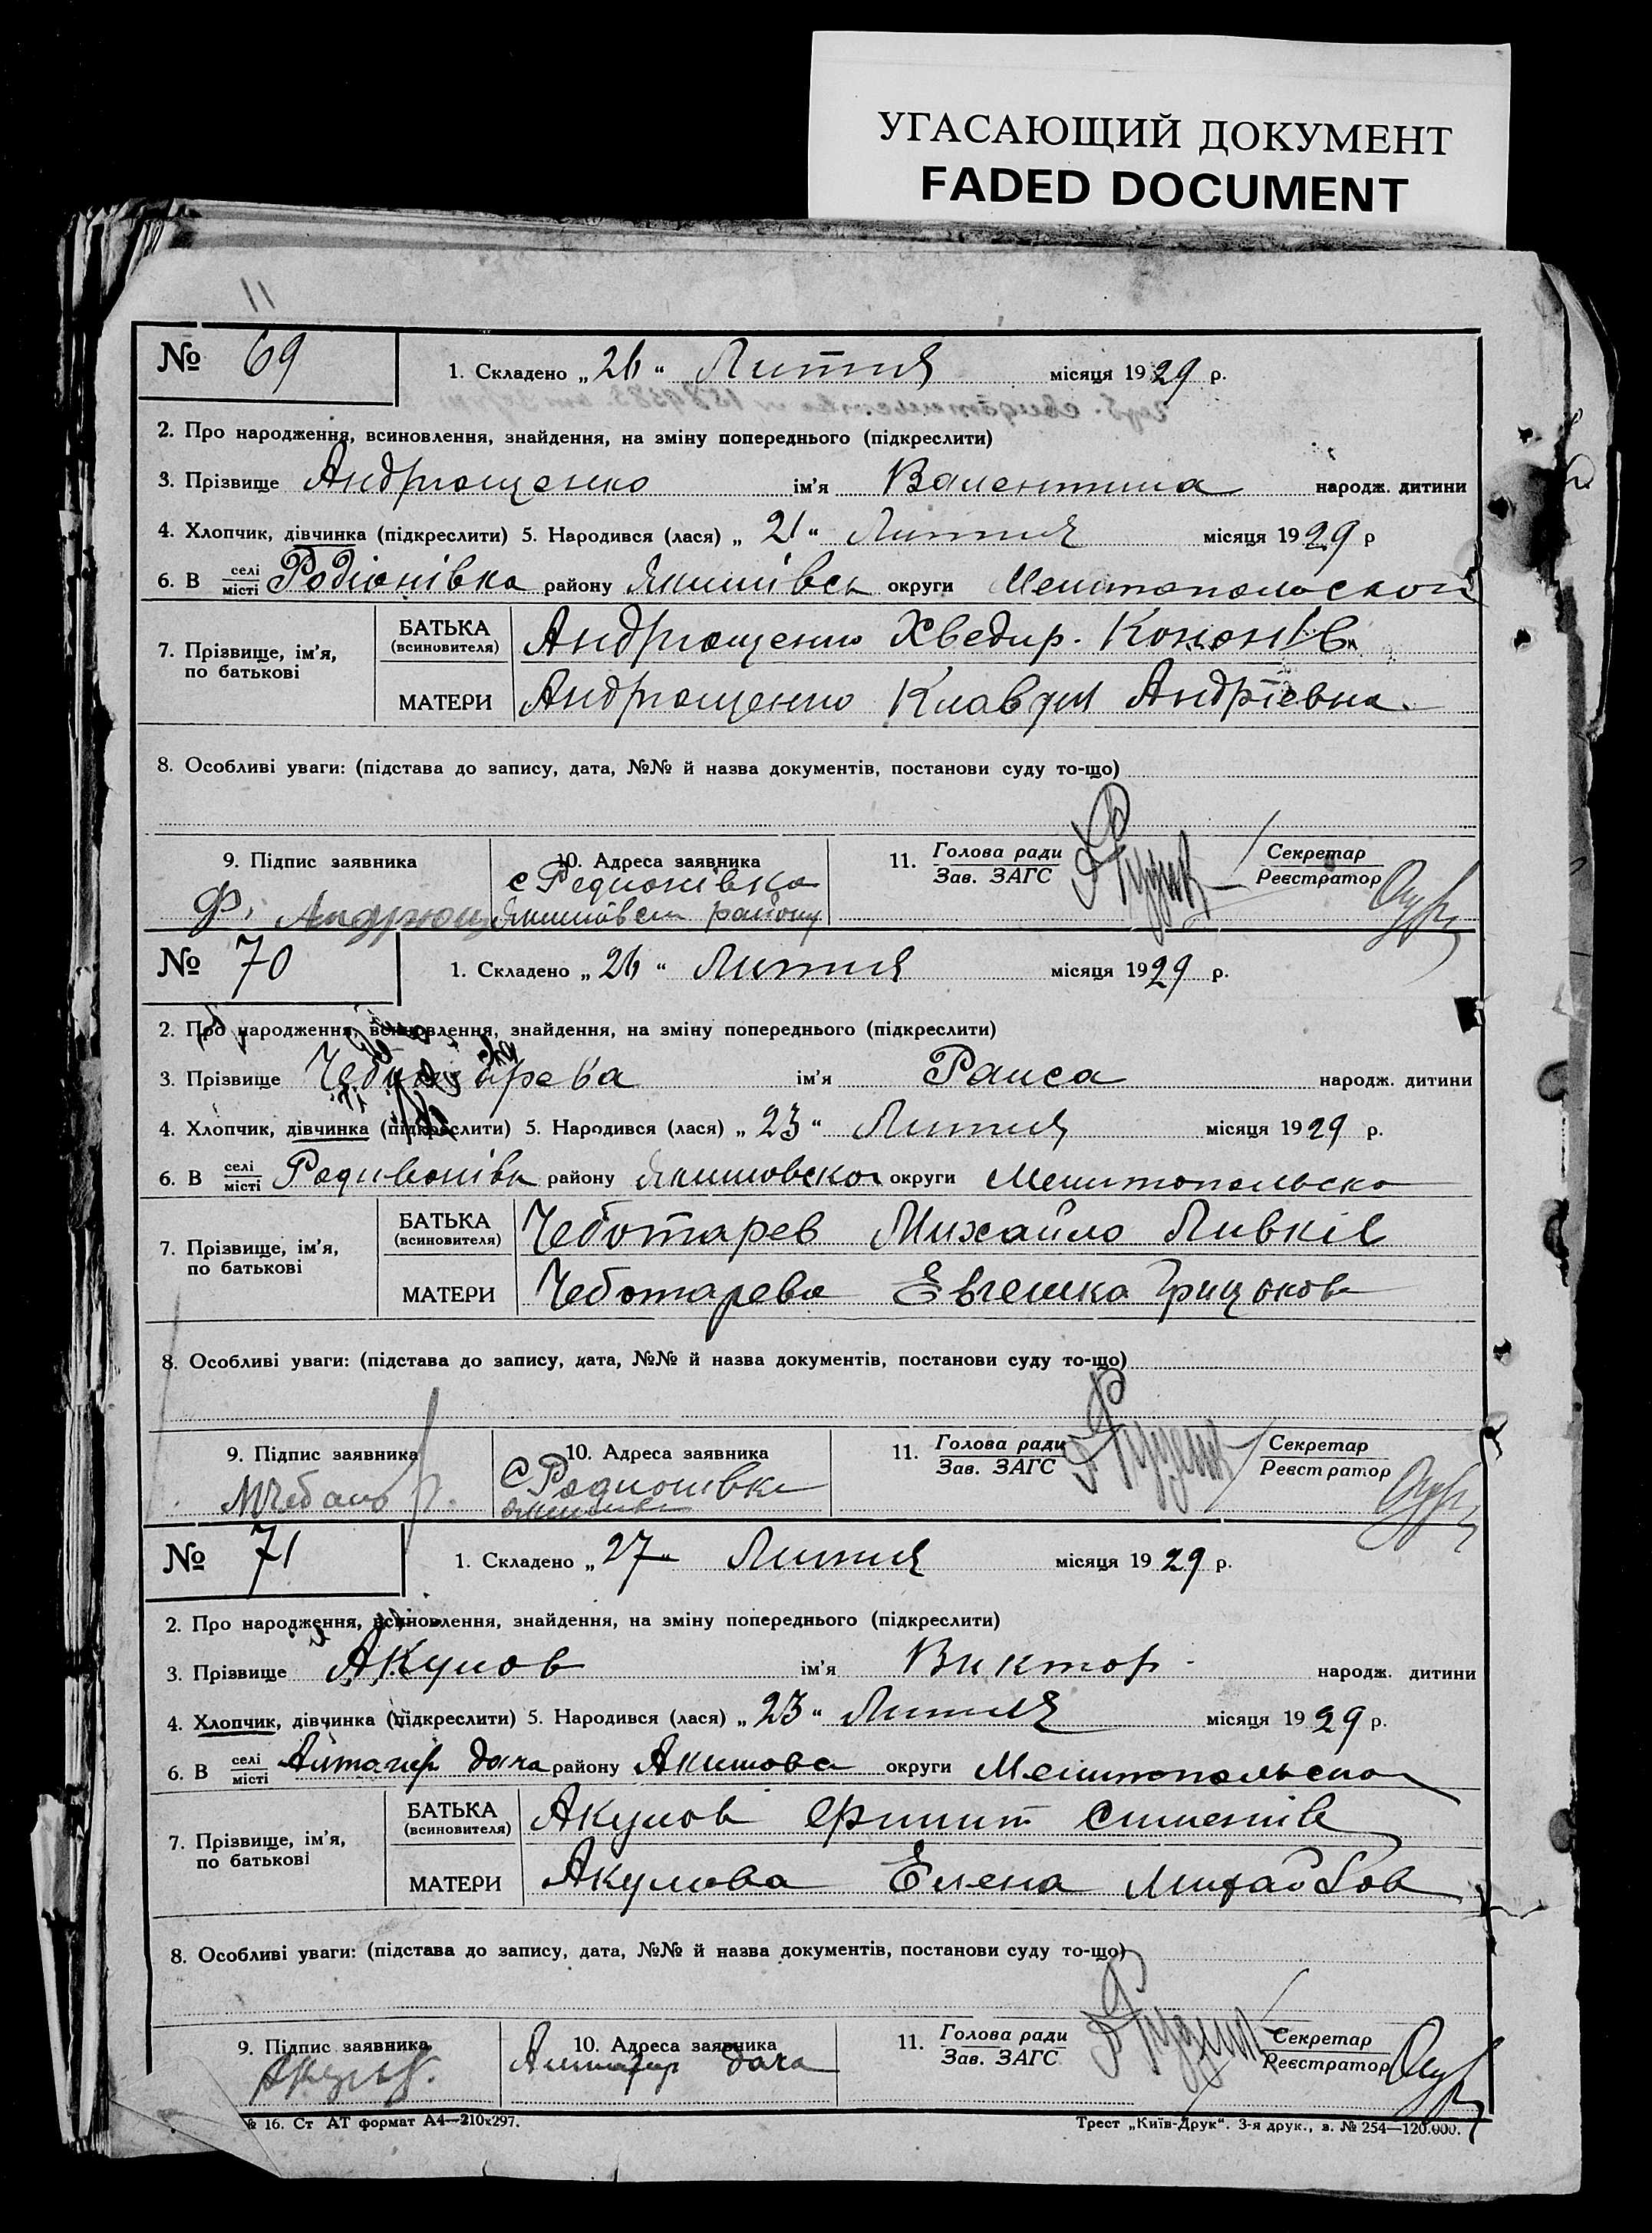 УГАСАЮЩИЙ ДОКУМЕНТ
FADED DOCUMENT
11
№ 69
1. Складено „26“ Лютня місяця 1929 р.
2. Про народження, всиновлення, знайдення, на зміну попереднього (підкреслити)
3. Прізвище Андрющенко ім'я Валентина народж. дитини
4. Хлопчик, дівчинка (підкреслити) 5. Народився (лася) „21“ Лютня місяця 1929 р
6. В селі місті Родіонівка району Якимівск округи Мелитопольской
7. Прізвище, ім'я, по батькові
БАТЬКА (всиновителя) Андрющенко Хведир. Кононів
МАТЕРИ Андрющенко Клавдия Андрієвна.
8. Особливі уваги: (підстава до запису, дата, №№ й назва документів, постанови суду то-що)
9. Підпис заявника 10. Адреса заявника 11. Голова ради Зав. ЗАГС Секретар Реєстратор
с Родионівка
Ф. Андрющ Якимівск району
№ 70
1. Складено „26“ Лютня місяця 1929 р.
2. Про народження, всиновлення, знайдення, на зміну попереднього (підкреслити)
3. Прізвище Чеботарева ім'я Раиса народж. дитини
4. Хлопчик, дівчинка (підкреслити) 5. Народився (лася) „23“ Лютня місяця 1929 р.
6. В селі місті Родивонівк району Якимовског округи Мелитопольско
7. Прізвище, ім'я, по батькові
БАТЬКА (всиновителя) Чеботарев Михайло Левків
МАТЕРИ Чеботарева Евгешка Грицьков
8. Особливі уваги: (підстава до запису, дата, №№ й назва документів, постанови суду то-що)
9. Підпис заявника 10. Адреса заявника 11. Голова ради Зав. ЗАГС Секретар Реєстратор
с Родионівка
№ 71
1. Складено „27“ Лютня місяця 1929 р.
2. Про народження, всиновлення, знайдення, на зміну попереднього (підкреслити)
3. Прізвище Акулов ім'я Виктор народж. дитини
4. Хлопчик, дівчинка (підкреслити) 5. Народився (лася) „23“ Лютня місяця 1929 р.
6. В селі місті дача району Акимовс округи Мелитопольской
7. Прізвище, ім'я, по батькові
БАТЬКА (всиновителя) Акулов Симонів
МАТЕРИ Акулова Елена
8. Особливі уваги: (підстава до запису, дата, №№ й назва документів, постанови суду то-що)
9. Підпис заявника 10. Адреса заявника 11. Голова ради Зав. ЗАГС Секретар Реєстратор
дача
№ 16. Ст АТ формат А4—210х297.
Трест „Київ-Друк“. 3-я друк., з. № 254—120.000.